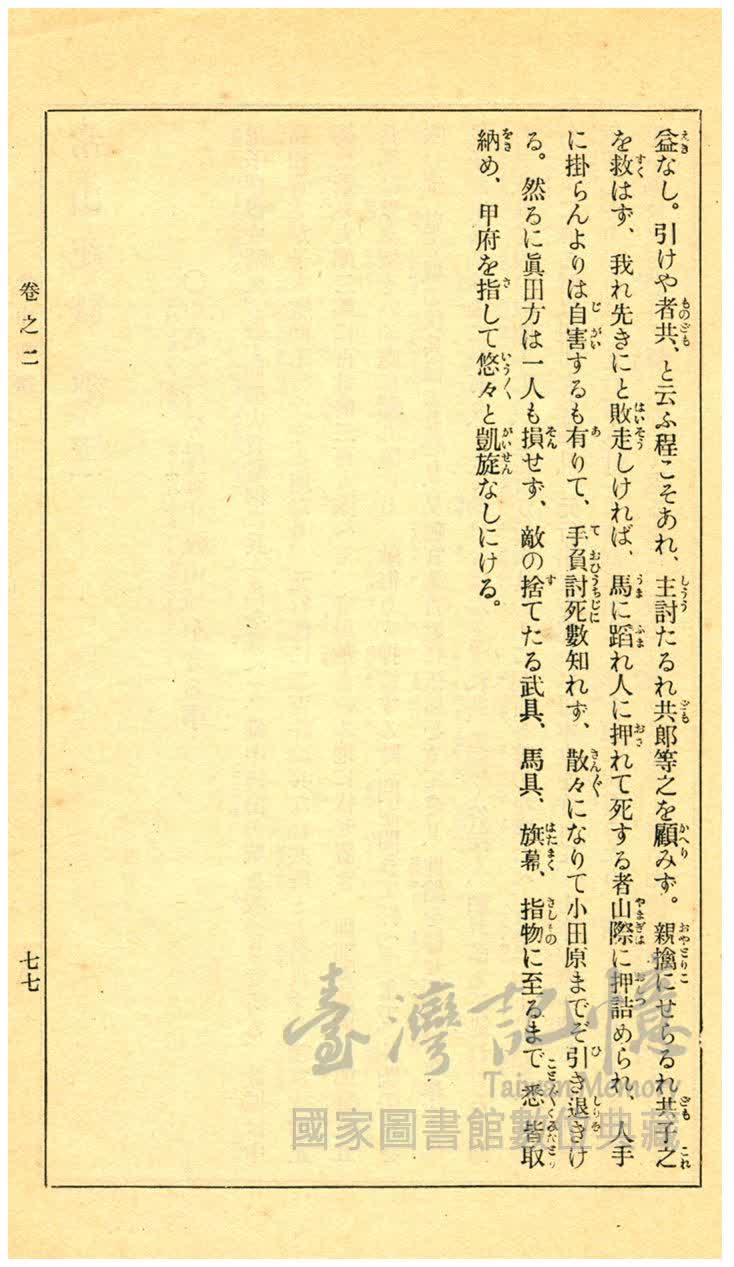 益なし。引けや者共、と云ふ程こそあれ、主討たるれ共郎等之を顧みず。親擒にせらるれ共子之
を救はず、我れ先きにと敗走しければ、馬に蹈れ人に押れて死する者山際に押詰められ、人手
に掛らんよりは自害するも有りて、手負討死數知れず、散々になりて小田原までぞ引き退きけ
る。然るに眞田方は一人も損せず、敵の捨てたる武具、馬具、旗幕、指物に至るまで悉皆取
納め、甲府を指して悠々と凱旋なしにける。
卷之二
七七
臺灣記憶
Taiwan Memory
國家圖書館數位典藏